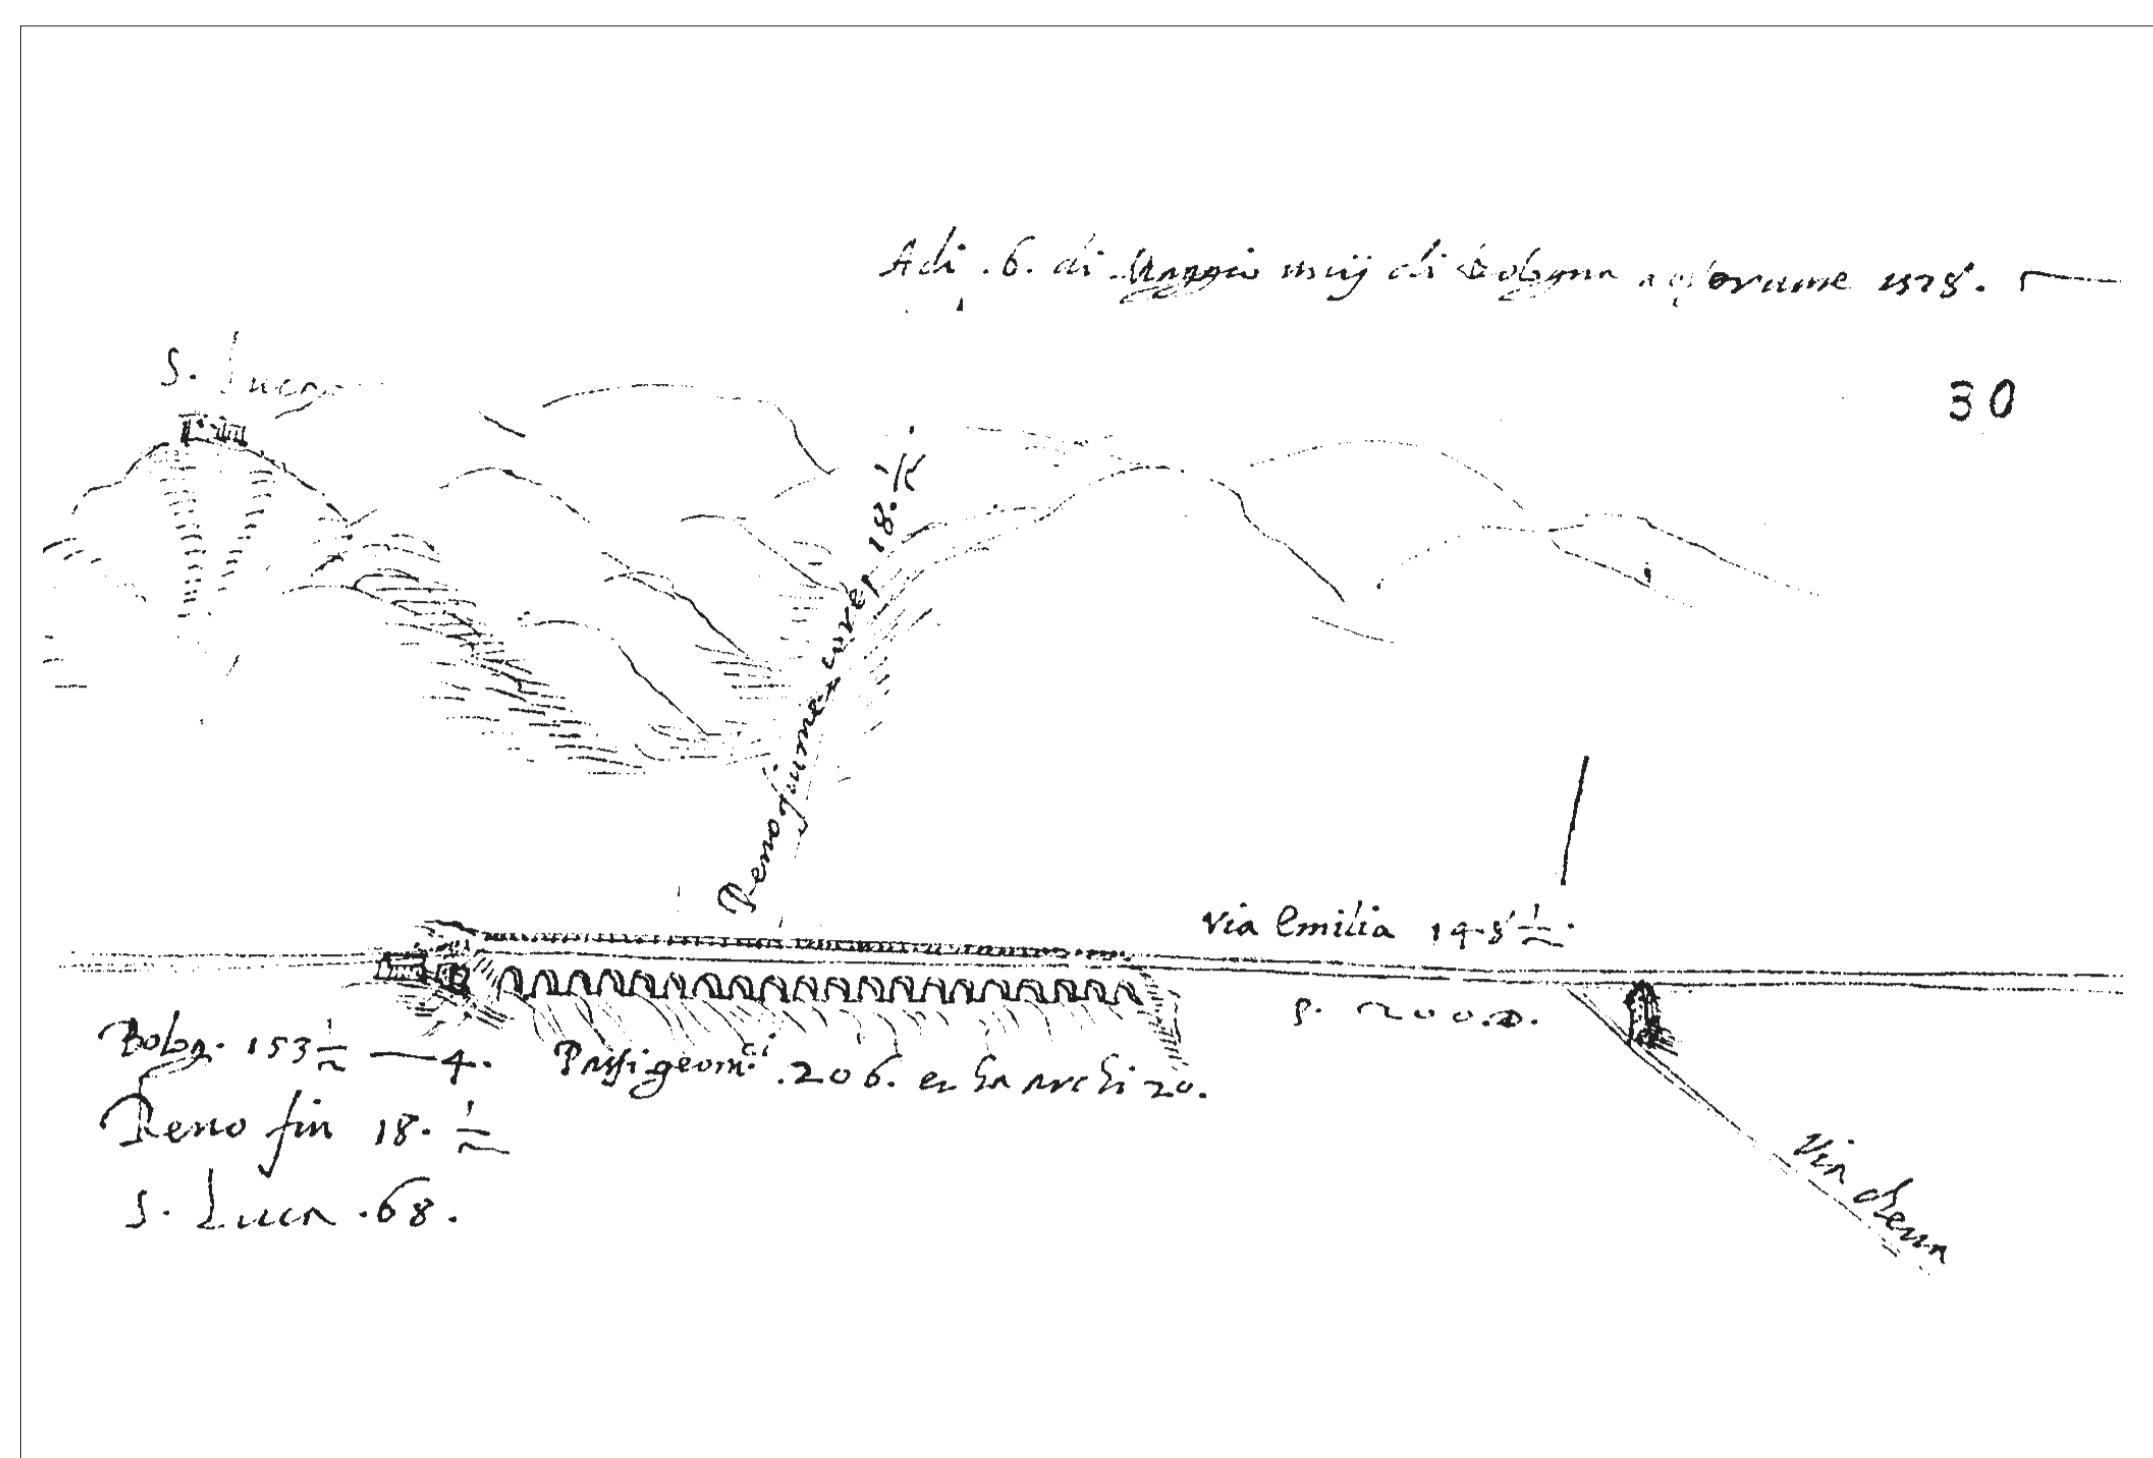 Adi .6. di Maggio usij di Bologna 1578.
30
S. Luca
Reno fiume 18. ½
via Emilia 148 ½.
p. 200.0.
Bolog. 153 ½ — 4.
Passi geom.ci .206. et ha archi 20.
Reno fiu 18. ½
S. Luca .68.
Via